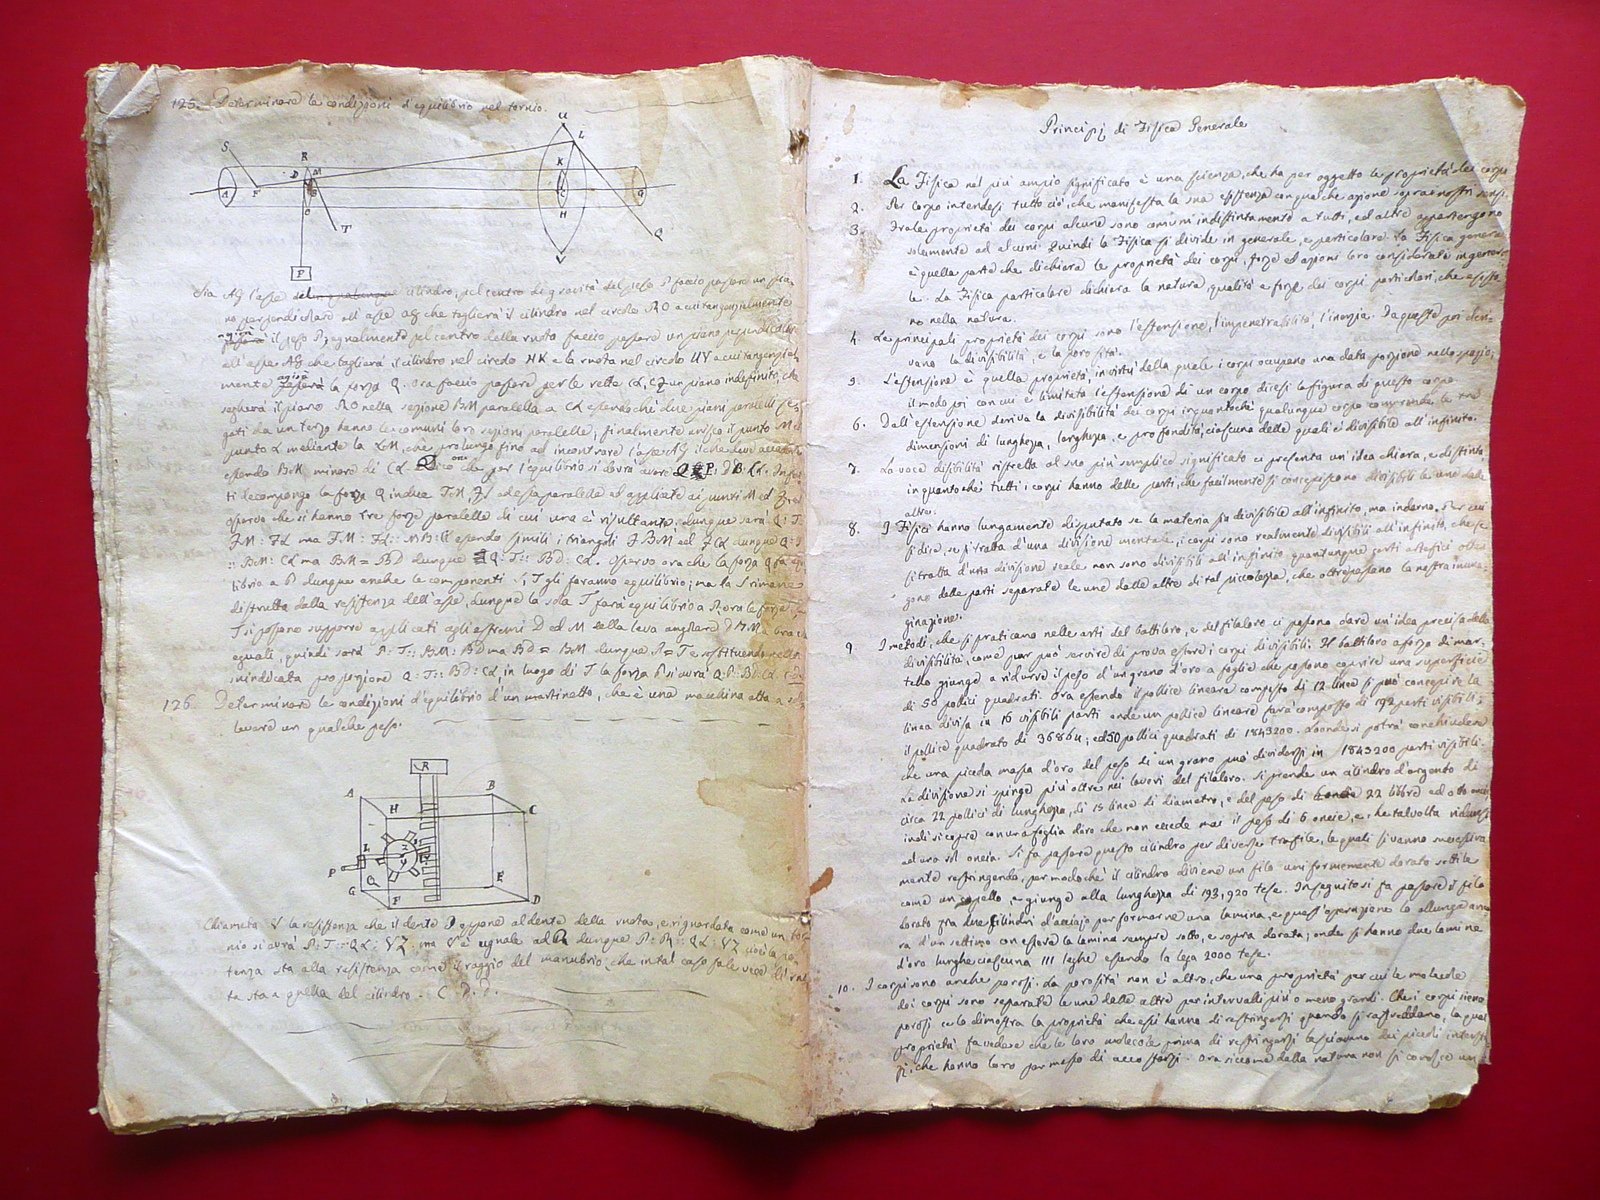 125. Determinare le condizioni d'equilibrio nel tornio.
U
S
R
L
K
D
M
A
F
B
C
G
H
O
T
Q
P
V
Sia AG l'asse del cilindro, pel centro di gravità del peso P faccio passare un pia-
no perpendicolare all'asse AG che taglierà il cilindro nel circolo RO a cui tangenzialmente
agirà il peso P; egualmente pel centro della ruota faccio passare un piano perpendicolare
all'asse AG che taglierà il cilindro nel circolo HK e la ruota nel circolo UV a cui tangenzial-
mente agirà la forza Q. Ora faccio passare per le rette CL, CG un piano indefinito, che
segherà il piano RO nella sezione BM parallela a CL essendochè due piani paralleli se-
gati da un terzo hanno le comuni loro sezioni parallele; finalmente unisco il punto M al
punto L mediante la LM, che prolungo fino ad incontrare l'asse il che deve accadere
essendo BM minore di CL. Dico che per l'equilibrio si dovrà avere Q:P::DB:CL. Infat-
ti decompongo la forza Q in due T, S ad essa paralelle ed applicate ai punti M ed F, ed
osservo che si hanno tre forze paralelle di cui una è risultante; dunque sarà Q:T::
FM:FL ma FM:FL::MB:CL essendo simili i triangoli FBM ed FCL dunque Q:T
::BM:CL ma BM=BD dunque Q:T::BD:CL. Osservo ora che la forza Q fa equi-
librio a P dunque anche le componenti S, T gli faranno equilibrio; ma la S rimane
distrutta dalla resistenza dell'asse, dunque la sola T farà equilibrio a P, ora le forze P,
T si possono supporre applicati agli estremi D ed M della leva angolare DBM a braccia
eguali, quindi sarà P:T::BM:BD ma BD=BM dunque P=T e sostituendo nella
suindicata proporzione Q:T::BD:CL, in luogo di T la forza P si avrà Q:P::BD:CL.
126. Determinare le condizioni d'equilibrio d'un martinetto, che è una macchina atta a sol-
levare un qualche peso.
R
A
B
H
C
I
P
Q
G
E
F
D
Chiamata V la resistenza che il dente oppone al dente della ruota, e riguardata come un tor-
nio si avrà ma V è eguale ad R dunque P:R::QL:VZ cioè la po-
tenza sta alla resistenza come il raggio del manubrio, che in tal caso fa le veci di ruo-
ta sta a quella del cilindro. C. D. D.
Principj di Fisica Generale
1. La Fisica nel più ampio significato è una scienza, che ha per oggetto le proprietà dei corpi
2. Per corpo intendesi tutto ciò, che manifesta la sua essenza con qualche azione sopra nostri sensi.
3. Tra le proprietà dei corpi alcune sono comuni indistintamente a tutti, ed altre appartengono
solamente ad alcuni. Quindi la Fisica si divide in generale, e particolare. La Fisica genera-
è quella parte che dichiara le proprietà dei corpi, forze ed azioni loro considerate in genera-
le. La Fisica particolare dichiara la natura, qualità e forze dei corpi particolari, che esisto-
no nella natura.
4. Le principali proprietà dei corpi sono l'estensione, l'impenetrabilità, l'inerzia. Da queste poi deri-
vano la divisibilità, e la porosità.
5. L'estensione è quella proprietà, in virtù della quale i corpi occupano una data porzione nello spazio,
il modo poi con cui è limitata l'estensione di un corpo dicesi la figura di questo corpo.
6. Dall'estensione deriva la divisibilità dei corpi inquantochè qualunque corpo comprende le tre
dimensioni di lunghezza, larghezza, e profondità, ciascuna delle quali è divisibile all'infinito.
7. La voce divisibilità ristretta al suo più semplice significato ci presenta un'idea chiara, e distinta
in quantochè tutti i corpi hanno delle parti, che facilmente si concepiscono divisibili le une dalle
altre.
8. I Fisici hanno lungamente disputato se la materia sia divisibile all'infinito, ma indarno. Per cui
si dice, se si tratta d'una divisione mentale, i corpi sono realmente divisibili all'infinito, che se
si tratta d'una divisione reale non sono divisibili all'infinito quantunque certi artefici otten-
gono delle parti separate le une dalle altre di tal piccolezza, che oltrepassano la nostra imma-
ginazione.
9. I metodi, che si praticano nelle arti del battiloro, e del filaloro ci possono dare un'idea precisa della
divisibilità, come pur può servire di prova essere i corpi divisibili. Il battiloro a forza di mar-
tello giunge a ridurre il peso d'un grano d'oro a foglie che possono coprire una superficie
di 50 pollici quadrati. Ora essendo il pollice lineare composto di 12 linee si può concepire la
linea divisa in 16 visibili parti onde un pollice lineare sarà composto di 192 parti visibili;
il pollice quadrato di 36864; ed 50 pollici quadrati di 1843200. Laonde si potrà conchiudere
che una piccola massa d'oro del peso di un grano può dividersi in 1843200 parti visibili.
La divisione si spinge più oltre nei lavori del filaloro. Si prende un cilindro d'argento di
circa 22 pollici di lunghezza, di 15 linee di diametro, e del peso di 22 libbre ed otto oncie
indi si copre con una foglia d'oro che non eccede mai il peso di 6 oncie, e che talvolta riducesi
ad una sol oncia. Si fa passare questo cilindro per diverse trafile, le quali si vanno successiva-
mente restringendo, per modochè il cilindro diviene un filo uniformemente dorato sottile
come un capello, e giunge alla lunghezza di 193,920 tese. In seguito si fa passare il filo
dorato fra due cilindri d'acciajo per formarne una lamina, e quest'operazione lo allunga anco-
ra d'un settimo con essere la lamina sempre sotto, e sopra dorata; onde si hanno due lamine
d'oro lunghe ciascuna 111 leghe essendo la lega 2000 tese.
10. I corpi sono anche porosi. La porosità non è altro, che una proprietà per cui le molecole
dei corpi sono separate le une dalle altre per intervalli più o meno grandi. Che i corpi sieno
porosi ce lo dimostra la proprietà che essi hanno di restringersi quando si raffreddano, la qual
proprietà fa vedere che le loro molecole prima di restringersi lasciavano dei piccoli interstiz-
zj, che hanno loro permesso di accostarsi. Ora siccome dalla natura non si conosce un